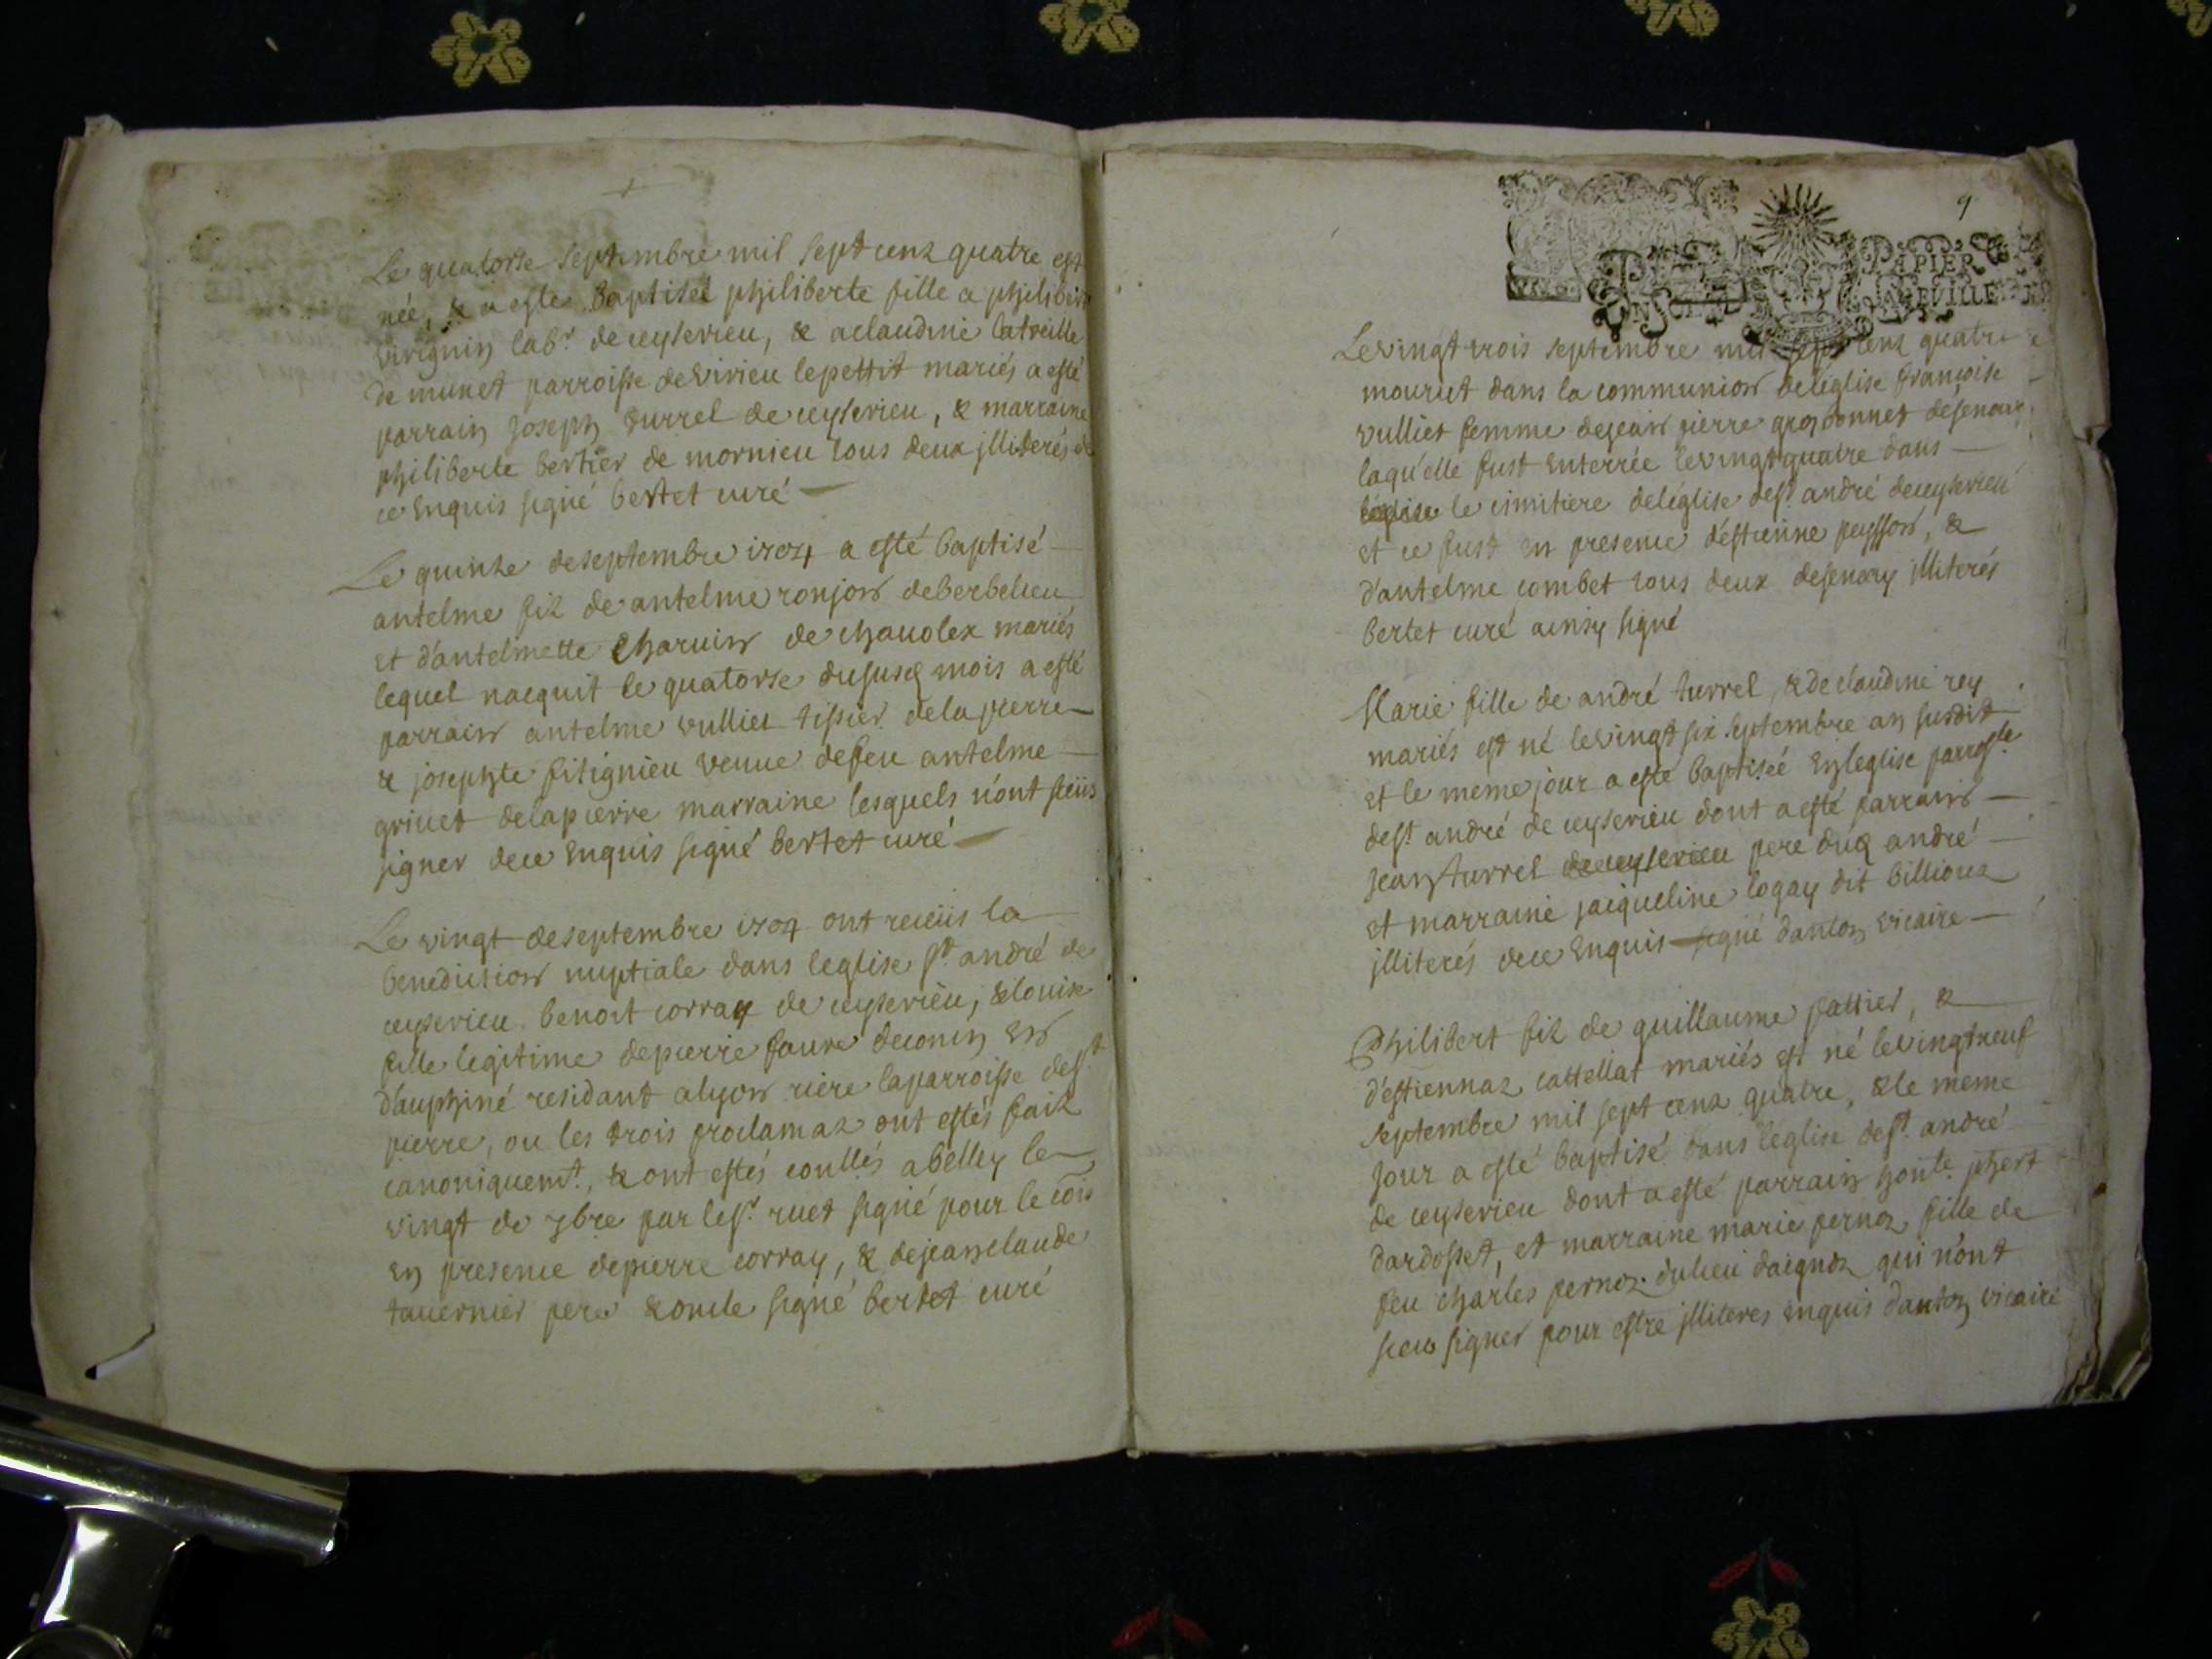 Le quatorse septembre mil sept cens quatre est
née, & a este Baptiseé philiberte fille a philibert
virignin labr. de ceyserieu, & a claudine latreille
de munet parroisse de virieu le pettit mariés a esté
parrain Joseph Turrel de ceyserieu, & marraine
philiberte bertier de mornieu tous deux jlliterés de
ce Enquis signé bertet curé
Le quinze de septembre 1704 a esté baptisé
antelme filz de antelme ronjon de berbelieu
et d'antelmette Charvin de chavolex mariés
lequel nacquit le quatorse du susd mois a esté
parrain antelme vulliet tissier de la pierre
& josephte fitignieu veuve de feu antelme
grivet de la pierre marraine lesquels n'ont sceüs
signer de ce Enquis signé bertet curé
Le vingt de septembre 1704 ont receüs la
benediction nuptiale dans leglise st. andré de
ceyserieu benoit corray de ceyserieu, & louise
fille legitime de pierre faure de conin En
d'auphiné residant a lyon riere la parroisse de st.
pierre, ou les trois proclamaz ont estés faiz
canoniquemt., & ont estés contlés a belley le
vingt de 7bre par le sr. ruet signé pour le cois
En presence de pierre corray, & de jean claude
tavernier pere & oncle signé bertet curé
9
PAPIER
Le vingt trois septembre mil sept cens quatre
mourut dans la communion de léglise françoise
vulliet femme de jean pierre grosbonnet de senoy
laqu'elle fust Enterrée le vingt quatre dans
léglise le cimitiere de léglise de st. andré de ceyserieu
et ce fust en presence d'estienne peysson, &
d'antelme combet tous deux de senoy jlliterés
bertet curé ainsy signé
Marie fille de andré turrel, & de claudine rey
mariés est né le vingt six septembre an susdit
et le meme jour a esté baptiseé En leglise parrosle.
de st. andré de ceyserieu dont a esté parrain
Jean turrel de ceyserieu pere dud andré
et marraine jaiqueline logay dit billioux
jlliterés de ce Enquis signé danton vicaire
Philibert filz de guillaume pattier, &
d'estiennaz cattellat mariés est né le vingt neuf
septembre mil sept cens quatre, & le meme
Jour a esté baptisé dans leglise de st. andré
de ceyserieu dont a esté parrain honle. phert
dardosset, et marraine marie pernoz fille de
feu charles pernoz du lieu daignoz qui n'ont
sceus signer pour estre jlliteres enquis danton vicaire